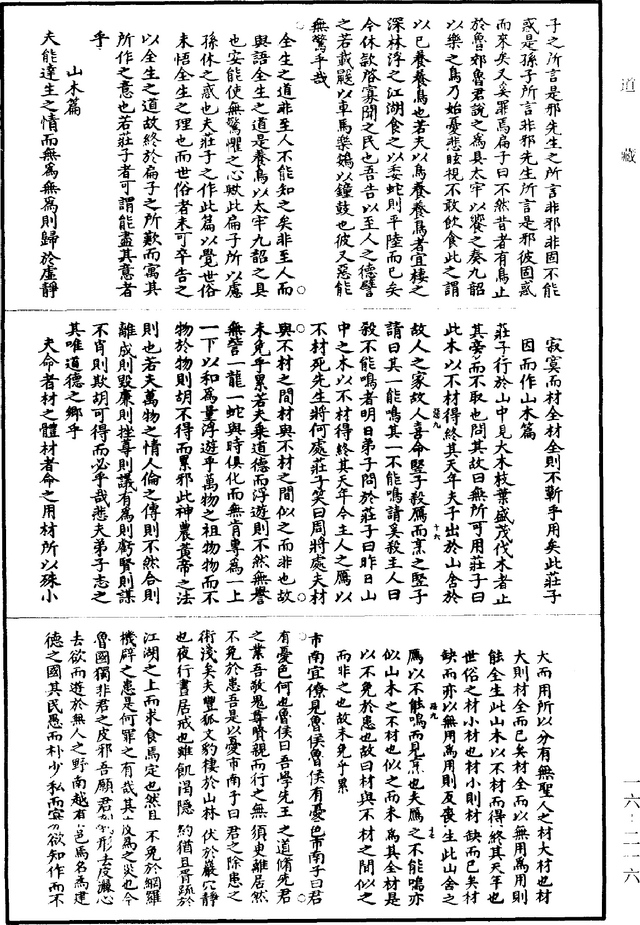 道藏
子之所言是邪先生之所言非邪非固不能
惑是孫子所言非邪先生所言是邪彼固惑
而來矣又奚罪焉扁子曰不然昔者有鳥止
於魯郊魯君說之為具太牢以饗之奏九韶
以樂之鳥乃始憂悲眩視不敢飲食此之謂
以已養養鳥也若夫以鳥養養鳥者宜棲之
深林浮之江湖食之以委蛇則平陸而已矣
今休款啓寡聞之民也吾告以至人之德譬
之若載鼷以車馬樂鴳以鐘鼓也彼又惡能
無驚乎哉
全生之道非至人不能知之矣非至人而
與語全生之道是養鳥以太牢九韶之具
也安能使無驚懼之心歟此扁子所以慮
孫休之惑也夫莊子之作此篇以覺世俗
未悟全生之理也而世俗者未可卒告之
以全生之道故終於扁子之所歎而寓其
所作之意也若莊子者可謂能盡其意者
乎
山木篇
夫能達生之情而無為無為則歸於虛靜
寂寞而材全材全則不蘄乎用矣此莊子
因而作山木篇
莊子行於山中見大木枝葉盛茂伐木者止
其旁而不取也問其故曰無所可用莊子曰
此木以不材得終其天年夫子出於山舍於
故人之家故人喜命豎子殺雁而烹之豎子
請曰其一能鳴其一不能鳴請奚殺主人曰
殺不能鳴者明日弟子問於莊子曰昨日山
中之木以不材得終其天年今主人之雁以
不材死先生將何處莊子笑曰周將處夫材
與不材之間材與不材之間似之而非也故
未免乎累若夫乘道德而浮遊則不然無譽
無訾一龍一蛇與時俱化而無肯專為一上
一下以和為量浮遊乎萬物之祖物物而不
物於物則胡可得而累邪此神農黃帝之法
則也若夫萬物之情人倫之傳則不然合則
離成則毀廉則挫尊則議有為則虧賢則謀
不肖則欺胡可得而必乎哉悲夫弟子志之
其唯道德之鄉乎
夫命者材之體材者命之用材所以殊小
大而用所以分有無聖人之材大材也材
大則材全而已矣材全而以無用為用則
能全生此山木以不材而得終其天年也
世俗之材小材也材小則材缺而已矣材
缺而亦以無用為用則反喪生此山舍之
雁以不能鳴而見烹也夫雁之不能鳴亦
似山木之不材也似之而未為其全材是
以不免於患也故曰材與不材之間似之
而非之也故未免乎累
市南宜僚見魯侯魯侯有憂色市南子曰君
有憂色何也魯侯曰吾學先王之道脩先君
之業吾敬鬼尊賢親而行之無須臾離居然
不免於患吾是以憂市南子曰君之除患之
術淺矣夫豐狐文豹棲於山林伏於巖穴靜
也夜行晝居戒也雖飢渴隱約猶且胥疏於
江湖之上而求食焉定也然且不免於網羅
機辟之患是何罪之有哉其皮為之災也今
魯國獨非君之皮邪吾願君刳形去皮灑心
去欲而遊於無人之野南越有邑焉名為建
德之國其民愚而朴少私而寡欲知作而不
一六·二一六